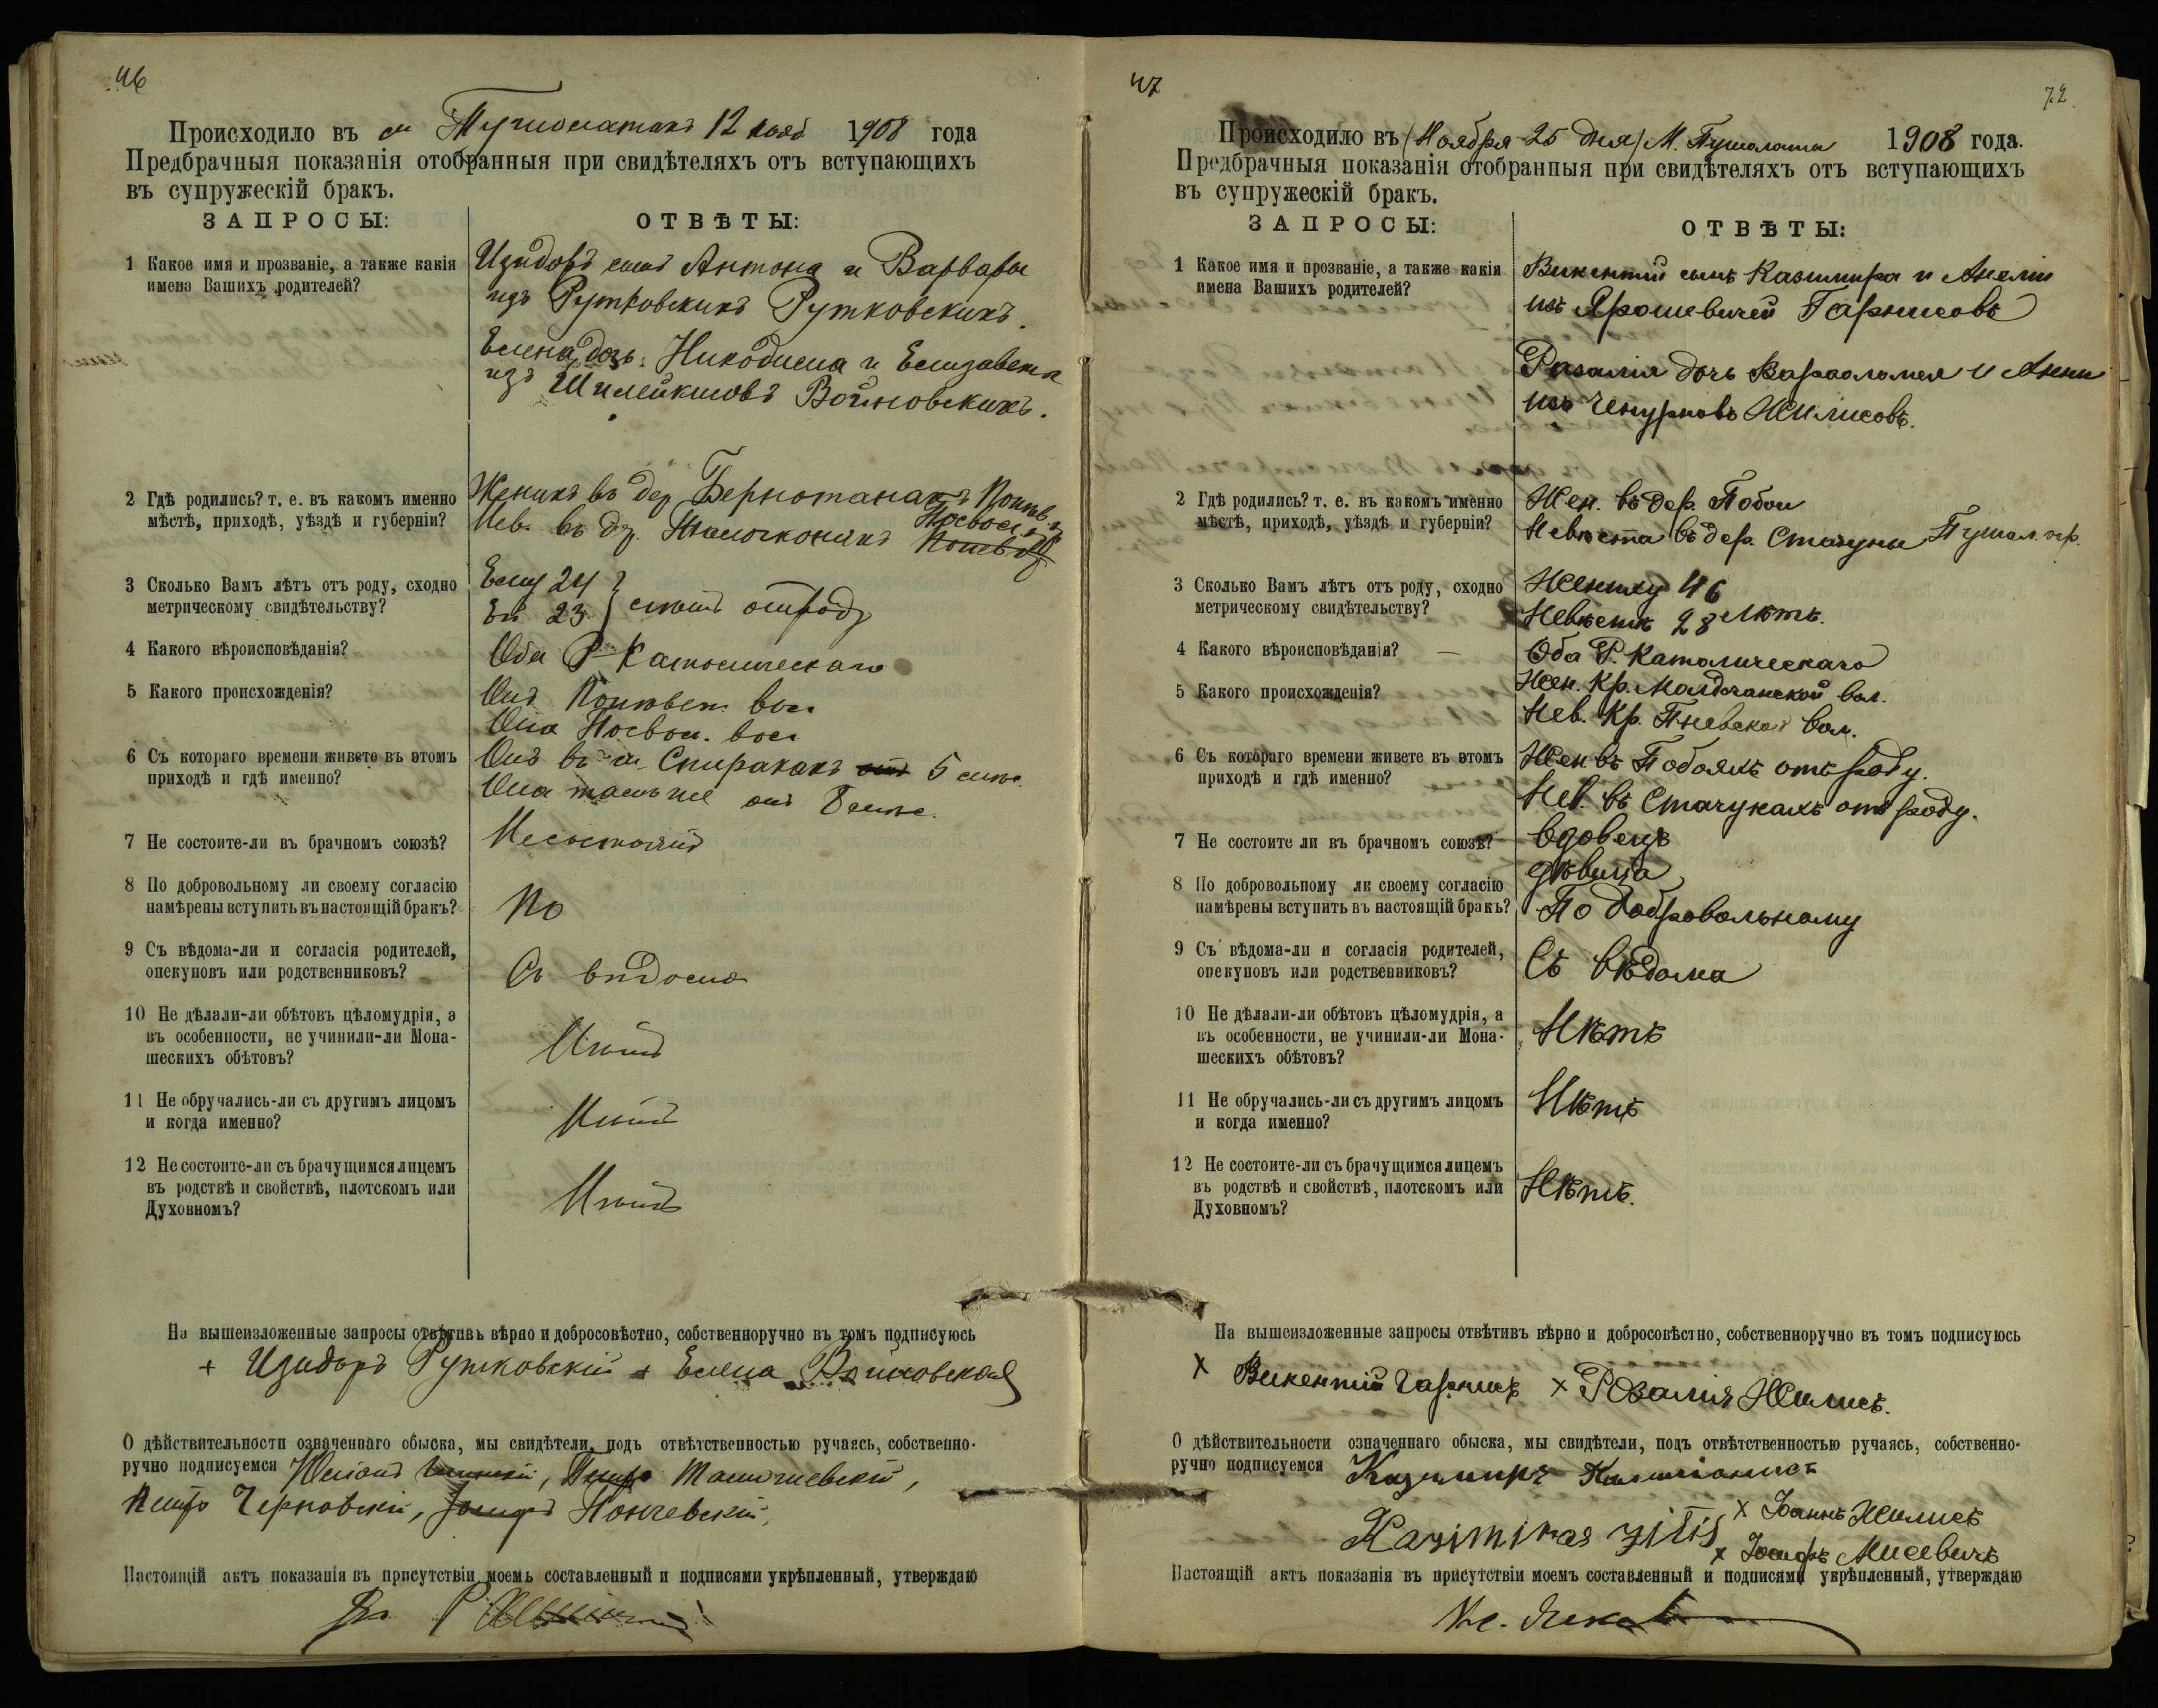 46
Происходило въ м. 12 нояб 1908 года
Предбрачныя показанія отобранныя при свидѣтеляхъ отъ вступающихъ
въ супружескій бракъ.
ЗАПРОСЫ: ОТВѢТЫ:
1 Какое имя и прозваніе, а также какія
имена Вашихъ родителей?
Изидоръ сынъ Антона и Варвары
изъ Рутковскихъ Рутковскихъ.
Елена дочь Никодима и Елизавета
изъ Войновскихъ.
2 Гдѣ родились? т. е. въ какомъ именно
мѣстѣ, приходѣ, уѣздѣ и губерніи?
Женихъ въ дер.
Нев. въ
3 Сколько Вамъ лѣтъ отъ роду, сходно
метрическому свидѣтельству?
Ему 24
Ей 23
4 Какого вѣроисповѣданія?
Оба Р-Католическаго
5 Какого происхожденія?
Онъ
Она
6 Съ котораго времени живете въ этомъ
приходѣ и гдѣ именно?
Онъ въ 5
Она 8
7 Не состоите-ли въ брачномъ союзѣ?
8 По добровольному ли своему согласію
намѣрены вступить въ настоящій бракъ?
По
9 Съ вѣдома-ли и согласія родителей,
опекуновъ или родственниковъ?
Съ вѣдома
10 Не дѣлали-ли обѣтовъ цѣломудрія, а
въ особенности, не учинили-ли Мона-
шескихъ обѣтовъ?
Нѣтъ
11 Не обручались-ли съ другимъ лицомъ
и когда именно?
Нѣтъ
12 Не состоите-ли съ брачущимся лицемъ
въ родствѣ и свойствѣ, плотскомъ или
Духовномъ?
Нѣтъ
На вышеизложенные запросы отвѣтивъ вѣрно и добросовѣстно, собственноручно въ томъ подписуюсь
+ Изидоръ Рутковскій + Елена Войновская
О дѣйствительности означеннаго обыска, мы свидѣтели, подъ отвѣтственностью ручаясь, собственно-
ручно подписуемся
Петръ Черновскій,
Настоящій актъ показанія въ присутствіи моемъ составленный и подписями укрѣпленный, утверждаю
47
72
Происходило въ (Ноября 25 дня) М. Пушолаты 1908 года.
Предбрачныя показанія отобранныя при свидѣтеляхъ отъ вступающихъ
въ супружескій бракъ.
ЗАПРОСЫ: ОТВѢТЫ:
1 Какое имя и прозваніе, а также какія
имена Вашихъ родителей?
Викентій сынъ Казимира и Анели
изъ Ярошевичей Гарнисовъ
Розалія дочь Варфоломея и Анны
изъ Жилисовъ.
2 Гдѣ родились? т. е. въ какомъ именно
мѣстѣ, приходѣ, уѣздѣ и губерніи?
Жен. въ дер. Побои
Невѣста въ дер. Стачуны Пушол. пр.
3 Сколько Вамъ лѣтъ отъ роду, сходно
метрическому свидѣтельству?
Жениху 46
Невѣстѣ 28 лѣтъ.
4 Какого вѣроисповѣданія? —
Оба Р. Католическаго
5 Какого происхожденія?
Жен. Кр. вол.
Нев. Кр. вол.
6 Съ котораго времени живете въ этомъ
приходѣ и гдѣ именно?
Жен. въ Побояхъ отъ роду.
Нев. въ Стачунахъ отъ роду.
7 Не состоите ли въ брачномъ союзѣ?
Вдовецъ
дѣвица
8 По добровольному ли своему согласію
намѣрены вступить въ настоящій бракъ?
По добровольному
9 Съ вѣдома-ли и согласія родителей,
опекуновъ или родственниковъ?
Съ вѣдома
10 Не дѣлали-ли обѣтовъ цѣломудрія, а
въ особенности, не учинили-ли Мона-
шескихъ обѣтовъ?
Нѣтъ
11 Не обручались-ли съ другимъ лицомъ
и когда именно?
Нѣтъ
12 Не состоите-ли съ брачущимся лицемъ
въ родствѣ и свойствѣ, плотскомъ или
Духовномъ?
Нѣтъ.
На вышеизложенные запросы отвѣтивъ вѣрно и добросовѣстно, собственноручно въ томъ подписуюсь
X Викентій Гарнисъ X Розалія Жилисъ.
О дѣйствительности означеннаго обыска, мы свидѣтели, подъ отвѣтственностью ручаясь, собственно-
ручно подписуемся Казимиръ
X Іоаннъ Жилисъ
Kazimiras Zilis
X Іосифъ Мисевичъ
Настоящій актъ показанія въ присутствіи моемъ составленный и подписями укрѣпленный, утверждаю